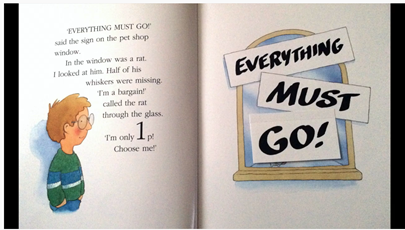 'EVERYTHING MUST GO!'
said the sign on the pet shop
window.
In the window was a rat.
I looked at him. Half of his
whiskers were missing.
'I'm a bargain!'
called the rat
through the glass.
'I'm only 1p!
Choose me!'
EVERYTHING
MUST
GO!